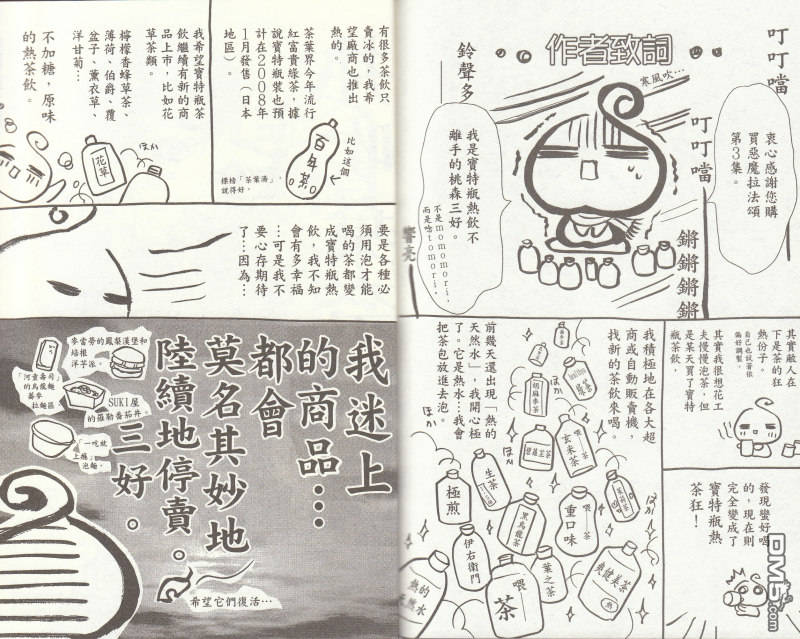 作者致詞
叮叮噹
叮叮噹
鈴聲多
響亮
鏘鏘鏘鏘
寒風吹…
衷心感謝您購
買惡魔拉法頌
第3集。
我是寶特瓶熱飲不
離手的桃森三好。
不是momomori,
而是唸tomori。
其實敵人在
下是茶的狂
熱份子。
自己也說著很
偏好調製。
其實我很想花工
夫慢慢泡茶,但
是某天買了寶特
瓶茶飲,
發現蠻好喝
的,現在則
完全變成了
寶特瓶熱
茶狂!
我積極地在各大超
商或自動販賣機,
找新的茶飲來喝。
前幾天還出現「熱的
天然水」,我開心極
了。它是熱水…我會
把茶包放進去泡。
ほか
ほか
ほか
胡麻麥茶
綠茶
碧羅芷茶
玄米茶
茉莉花茶
生茶
極煎
黑烏龍茶
喂
重口味
伊右衛門
喂
茶
葉之茶
爽健美茶
熱
熱的
天然水
有很多茶飲只
賣冰的,我希
望廠商也推出
熱的。
茶葉界今年流行
紅富貴綠茶,據
說寶特瓶裝也預
計在2008年
1月發售(日本
地區)。
比如這個
百年茶
標榜「茶葉湯」,
說得好。
我希望寶特瓶茶
飲繼續有新的商
品上市,比如花
草茶類。
檸檬香蜂草茶、
薄荷、伯爵、覆
盆子、薰衣草、
洋甘菊…
不加糖,原味
的熱茶飲。
ほか
花草
要是各種必
須用泡才能
喝的茶都變
成寶特瓶熱
飲,我不知
會有多幸福
…可是我不
要心存期待
了…因為…
我迷上
的商品…
都會
莫名其妙地
陸續地停賣。
三好。
麥當勞的鳳梨漢堡和
培根
洋芋派。
「河童壽司」
的烏龍麵
蕎麥
拉麵區
SUKI屋
的羅勒番茄丼。
「一吃就
上癮」
泡麵。
希望它們復活…
DM5.com